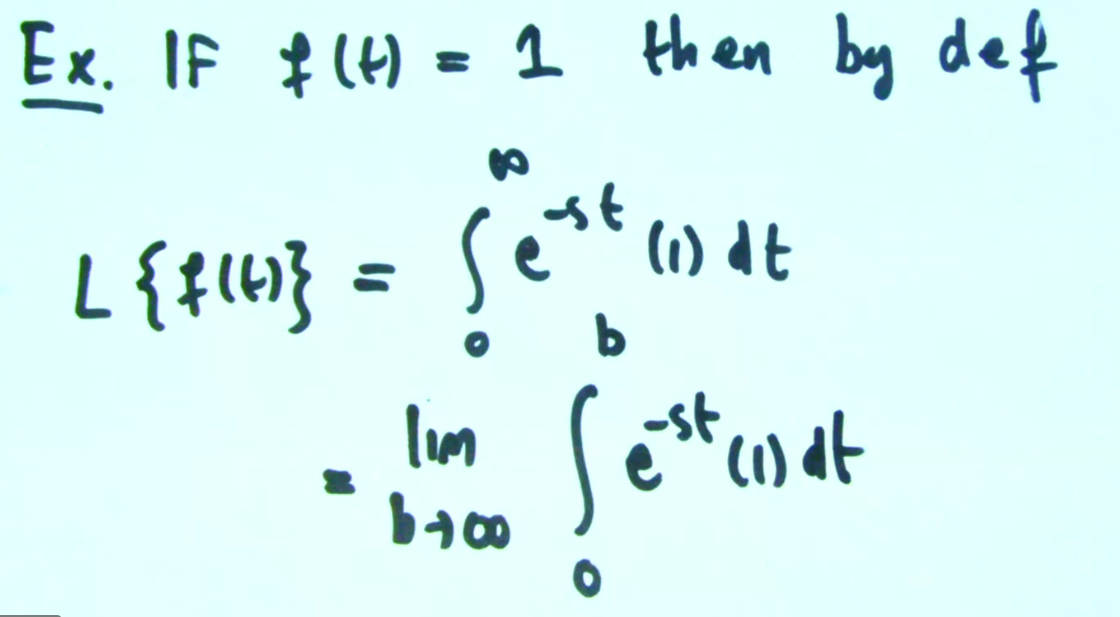 Ex. IF f(t) = 1 then by def
L{f(t)} = ∫₀^∞ e^{-st} (1) dt
= lim_{b→∞} ∫₀^b e^{-st} (1) dt